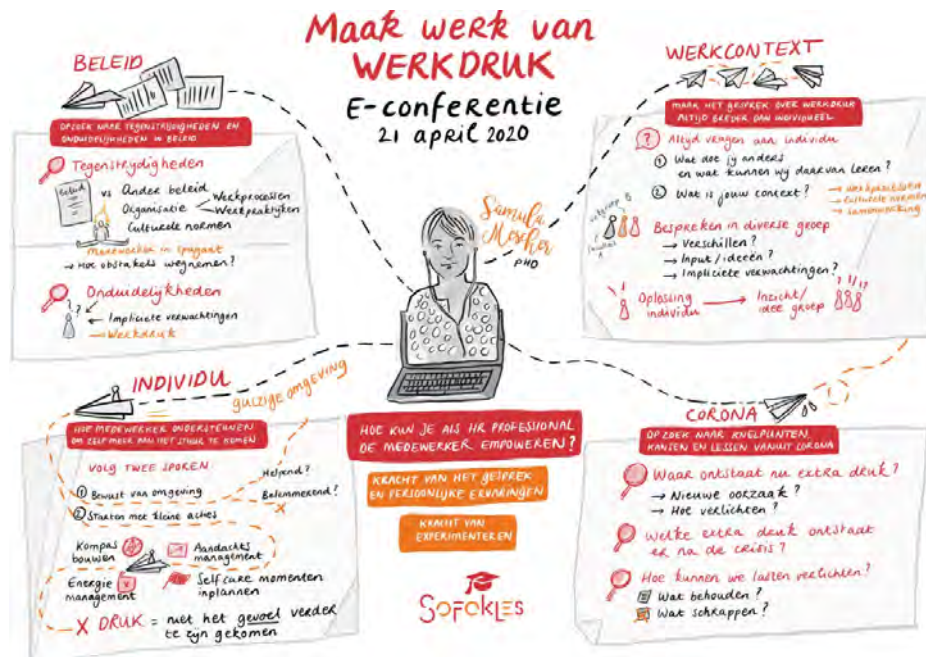 Maak werk van
WERKDRUK
E-conferentie
21 april 2020
BELEID
OPZOEK NAAR TEGENSTRIJDIGHEDEN EN
ONDUIDELIJKHEDEN IN BELEID
Tegenstrijdigheden
Beleid
vs Ander beleid
Organisatie
Werkprocessen
Werkpraktijken
Culturele normen
Medewerker in spagaat
→ Hoe obstakels wegnemen?
Onduidelijkheden
? ?
← Impliciete verwachtingen
→ Werkdruk
WERKCONTEXT
MAAK HET GESPREK OVER WERKDRUK
ALTIJD BREDER DAN INDIVIDUEEL
? Altijd vragen aan individu
1 Wat doe jij anders
en wat kunnen wij daarvan leren?
2 Wat is jouw context?
→ Werkprocessen
→ Culturele normen
→ Samenwerking
Bespreken in diverse groep
→ Verschillen?
→ Input / ideeën?
→ Impliciete verwachtingen?
Oplossing
individu
→ Inzicht/
idee groep
Samula
Mescher
PHD
INDIVIDU
gulzige omgeving
HOE MEDEWERKER ONDERSTEUNEN
OM ZELF MEER AAN HET STUUR TE KOMEN
VOLG TWEE SPOREN
1 Bewust van omgeving
Helpend?
Belemmerend?
2 Starten met kleine acties
Kompas
bouwen
Aandachts
management
Energie
management
Selfcare momenten
inplannen
X DRUK = niet het gevoel verder
te zijn gekomen
HOE KUN JE ALS HR PROFESSIONAL
DE MEDEWERKER EMPOWEREN?
KRACHT VAN HET GESPREK
EN PERSOONLIJKE ERVARINGEN
KRACHT VAN
EXPERIMENTEREN
SOFOKLES
CORONA
OP ZOEK NAAR KNELPUNTEN,
KANSEN EN LESSEN VANUIT CORONA
Waar ontstaat nu extra druk?
→ Nieuwe oorzaak?
→ Hoe verlichten?
Welke extra druk ontstaat
er na de crisis?
Hoe kunnen we lasten verlichten?
Wat behouden?
Wat schrappen?